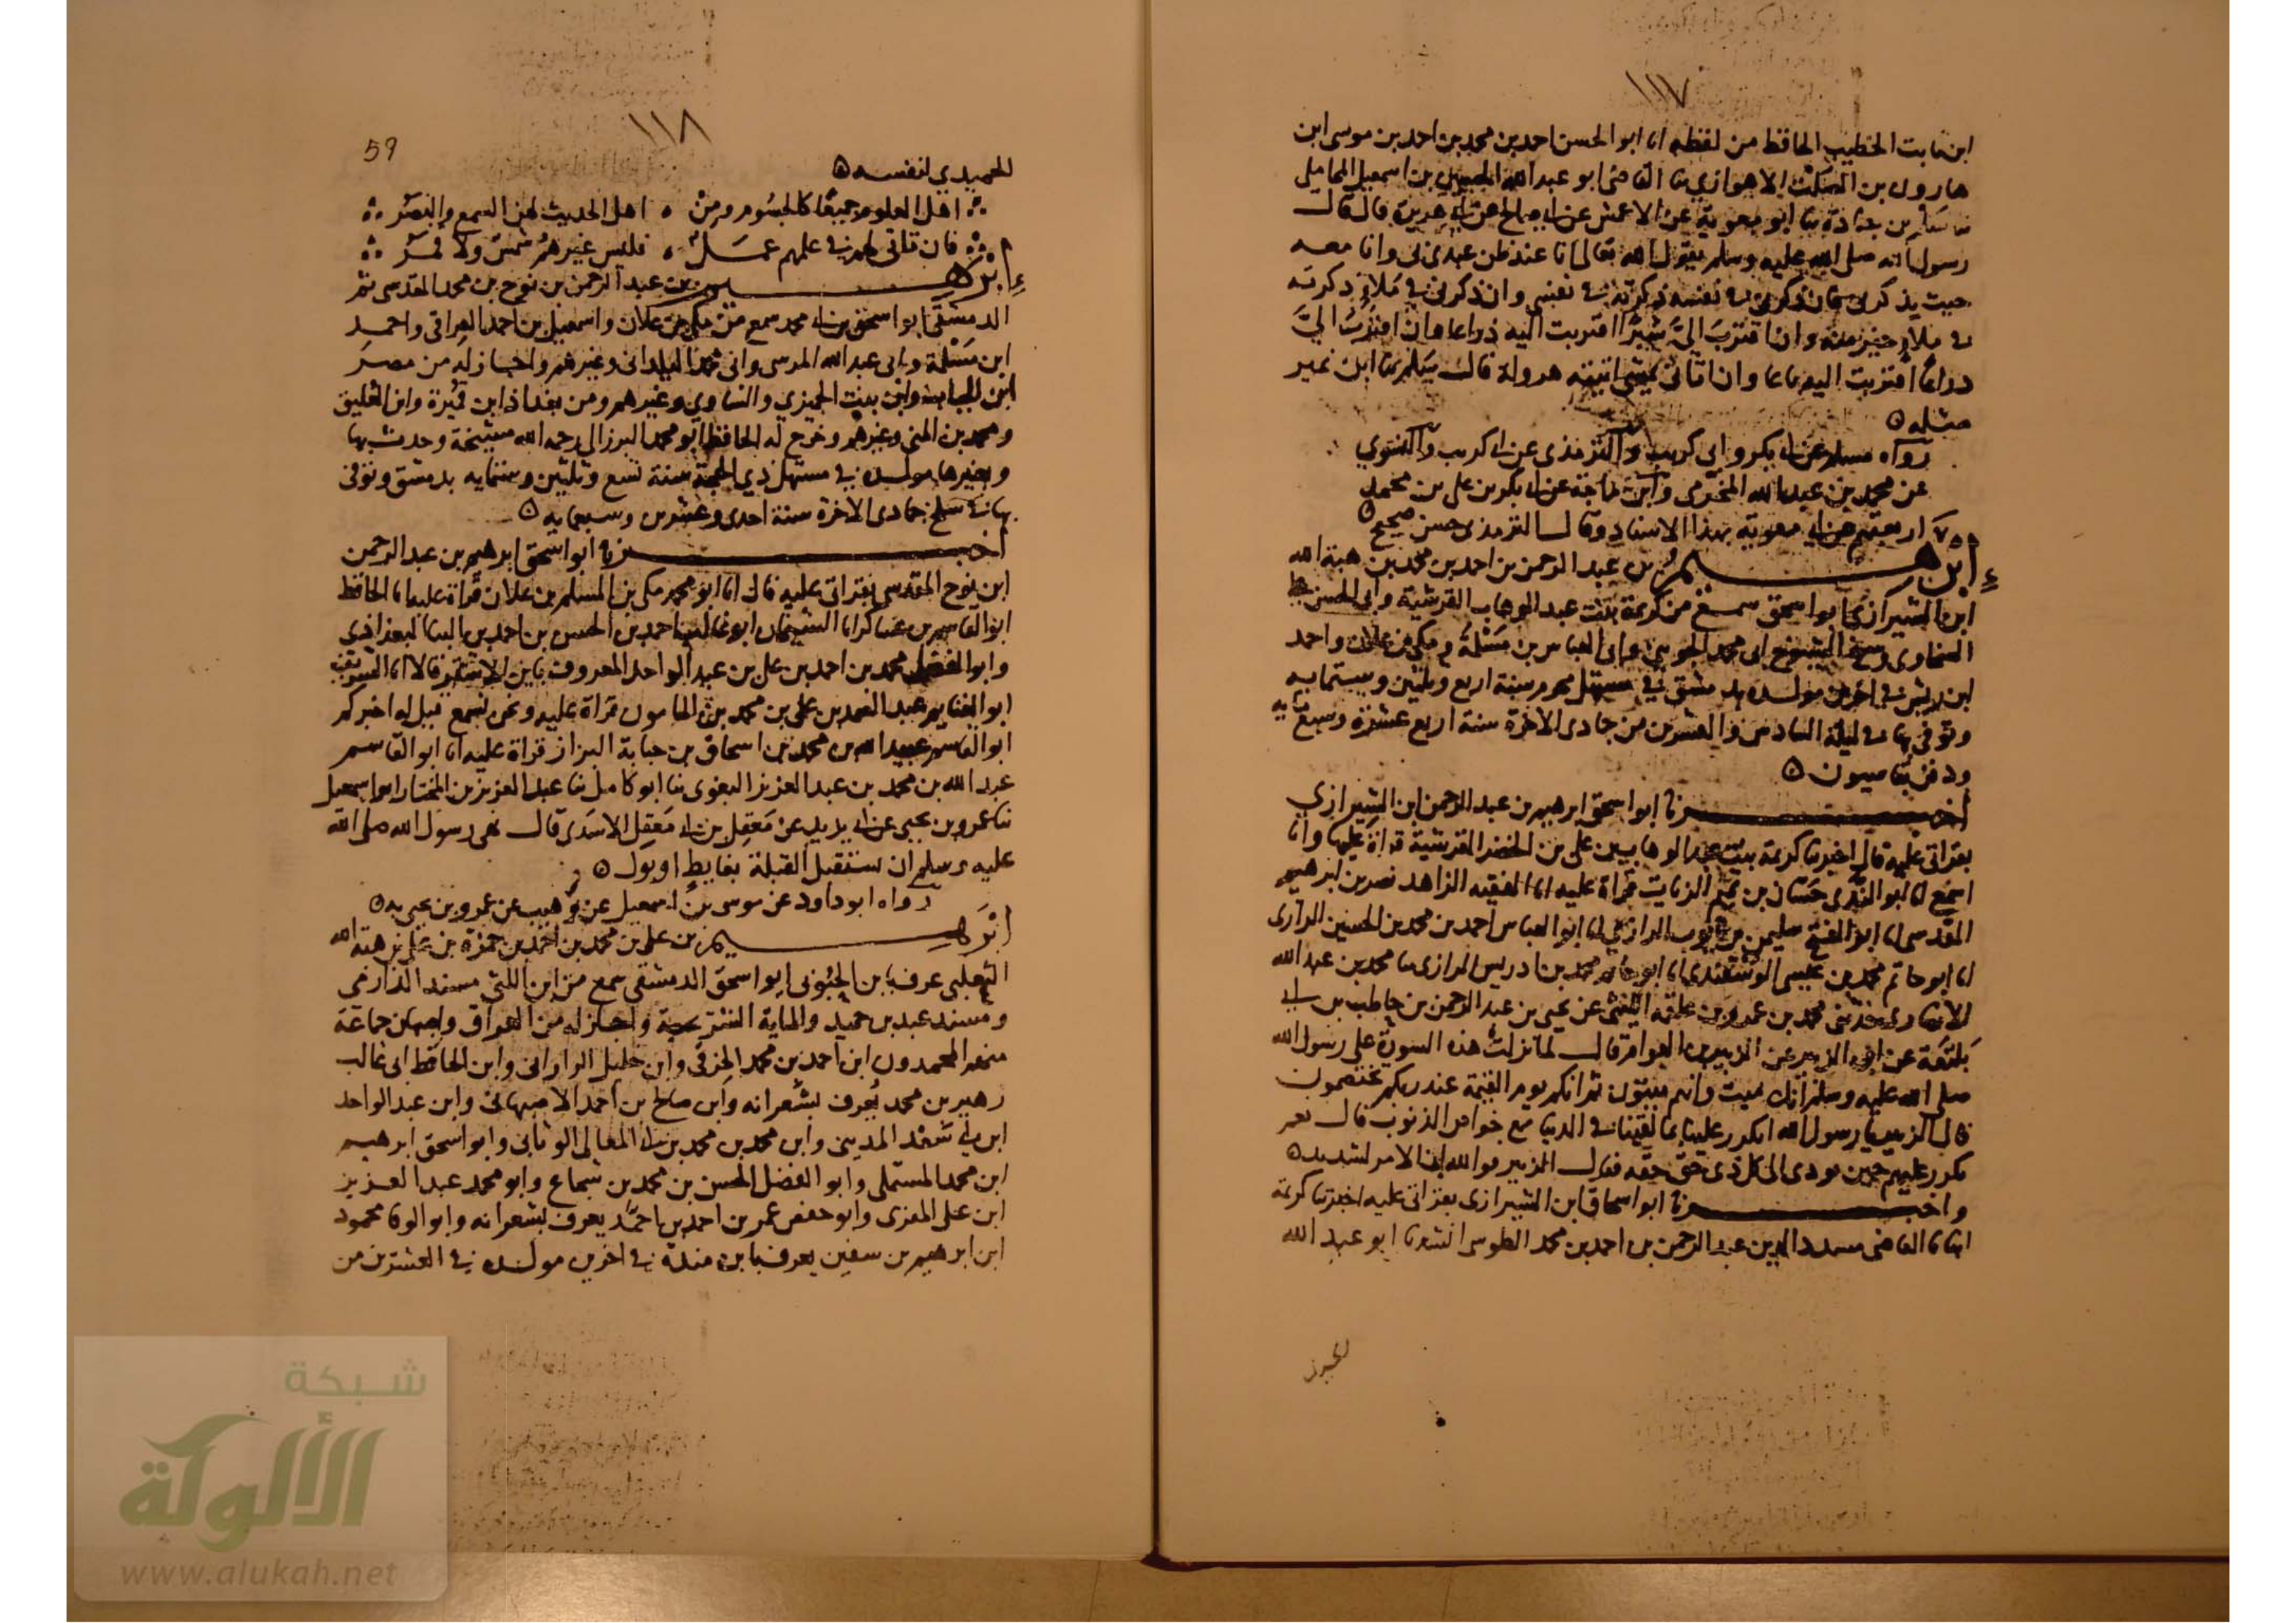 ١١٧
ابن ثابت الخطيب الحافظ من لفظه انا ابو الحسن احمد بن محمد بن احمد بن موسى ابن
هارون بن الصلت الاهوازي نا القاضي ابو عبد الله الحسين بن اسمعيل المحاملي
نا سلم بن جنادة نا ابو معوية عن الاعمش عن ابي صالح عن ابي هريرة قال قال
رسول الله صلى الله عليه وسلم يقول الله تعالى انا عند ظن عبدي بي وانا معه
حيث يذكرني فان ذكرني في نفسه ذكرته في نفسي وان ذكرني في ملاء ذكرته
في ملاء خير منه وان اقترب الي شبرا اقتربت اليه ذراعا وان اقترب الي
ذراعا اقتربت اليه باعا وان اتاني يمشي اتيته هرولة قال سلم نا ابن نمير
مثله
رواه مسلم عن ابي بكر وابي كريب والترمذي عن ابي كريب والنسوي
عن محمد بن عبد الله المخرمي وابن ماجة عن ابي بكر بن علي بن محمد
اربعتهم عن ابي معوية بهذا الاسناد وقال الترمذي حسن صحيح
ابرهيم بن عبد الرحمن بن احمد بن محمد بن هبة الله
ابن الشيرازي ابو اسحق سمع من كريمة بنت عبد الوهاب القرشية وابي الحسن
السخاوي وشيخ الشيوخ ابي محمد الجويني وابي العباس بن مسلمة ومكي بن علان واحمد
ابن في اخرين مولده بدمشق في مستهل محرم سنة اربع وثلثين وستمايه
وتوفي بها في ليلة السادس والعشرين من جمادى الاخرة سنة اربع عشرة وسبع مايه
ودفن بقاسيون
اخبرنا ابو اسحق ابرهيم بن عبد الرحمن ابن الشيرازي
بقراتي عليه قال اخبرتنا كريمة بنت عبد الوهاب بن علي بن الخضر القرشية قراة عليها وانا
اسمع انا ابو الندى حسان بن تميم الزيات قراة عليه انا الفقيه الزاهد نصر بن ابرهيم
المقدسي انا ابو الفتح سليمن بن ايوب الرازي انا ابو العباس احمد بن محمد بن الحسين الرازي
انا ابو حاتم محمد بن عيسى الوسقندي انا ابو حاتم محمد بن ادريس الرازي نا محمد بن عبد الله
الانصاري حدثني محمد بن عمرو بن علقمة الليثي عن يحيى بن عبد الرحمن بن حاطب بن ابي
بلتعة عن ابن الزبير عن الزبير بن العوام قال لما نزلت هذه السورة على رسول الله
صلى الله عليه وسلم انك ميت وانهم ميتون ثم انكم يوم القيمة عند ربكم تختصمون
قال الزبير يا رسول الله ايكرر علينا ما لقينا في الدنيا مع خواص الذنوب قال نعم
يكرر عليهم حين يودى الى كل ذي حق حقه فقال الزبير والله ان الامر لشديد
واخبرنا ابو اسحاق ابن الشيرازي بقراتي عليه اخبرتنا كريمة
انبانا القاضي سديد الدين عبد الرحمن بن احمد بن محمد الطوسي انشدنا ابو عبد الله
١١٨
59
للحميدي لنفسه
اهل العلوم جميعا كالجسوم ومن اهل الحديث لهن السمع والبصر
فان تاتى لهم في علمهم عمل فليس غيرهم شمس ولا قمر
ابرهيم بن عبد الرحمن بن نوح بن محمد المقدسي ثم
الدمشقي ابو اسحق بن ابي محمد سمع من مكي بن علان واسمعيل بن احمد العراقي واحمد
ابن مسلمة وابي عبد الله المرسي وابي محمد البلداني وغيرهم واجاز له من مصر
ابن الجباب وابن بنت الجميزي والشاوي وغيرهم ومن بغداذ ابن قميرة وابن العليق
ومحمد بن المني وغيرهم وخرج له الحافظ ابو محمد البرزالي رحمه الله مشيخة وحدث بها
وبغيرها مولده في مستهل ذي الحجة سنة تسع وثلثين وستمايه بدمشق وتوفي
بها في سلخ جمادى الاخرة سنة احدى وعشرين وسبعمايه
اخبرنا ابو اسحق ابرهيم بن عبد الرحمن
ابن نوح المقدسي بقراتي عليه قال انا ابو محمد مكي بن المسلم بن علان قراة عليه انا الحافظ
ابو القاسم بن عساكر انا الشيخان ابو غالب احمد بن الحسن بن احمد بن البنا البغداذي
وابو الفضل محمد بن احمد بن علي بن عبد الواحد المعروف بابن الاشقر قالا انا الشريف
ابو الغنايم عبد الصمد بن علي بن محمد بن المامون قراة عليه ونحن نسمع قيل له اخبركم
ابو القاسم عبيد الله بن محمد بن اسحاق بن حبابة البزاز قراة عليه انا ابو القاسم
عبد الله بن محمد بن عبد العزيز البغوي نا ابو كامل نا عبد العزيز بن المختار ابو اسمعيل
نا عمرو بن يحيى عن ابي يزيد عن معقل بن ابي معقل الاسدي قال نهى رسول الله صلى الله
عليه وسلم ان نستقبل القبلة بغايط او بول
رواه ابو داود عن موسى بن اسمعيل عن وهيب عن عمرو بن يحيى به
ابرهيم بن علي بن محمد بن احمد بن حمزة بن علي بن هبة الله
الثعلبي عرف بابن الحبوبي ابو اسحق الدمشقي سمع من ابن اللتي مسند الدارمي
ومسند عبد بن حميد والماية الشريحية واجاز له من العراق واصبهان جماعة
منهم المحمدون ابن احمد بن محمد الخرقي وابن خليل الراراني وابن الحافظ ابي غالب
زهير بن محمد يعرف بشعرانه وابن صالح بن احمد الاصبهاني وابن عبد الواحد
ابن ابي سعد المديني وابن محمد بن محمد بن ابي المعالي الوثابي وابو اسحق ابرهيم
ابن محمد المستملي وابو الفضل الحسن بن محمد بن شجاع وابو محمد عبد العزيز
ابن علي المغزى وابو حفص عمر بن احمد بن احمد يعرف بشعرانه وابو الوفا محمود
ابن ابرهيم بن سفين يعرف بابن مندة في اخرين مولده في العشرين من